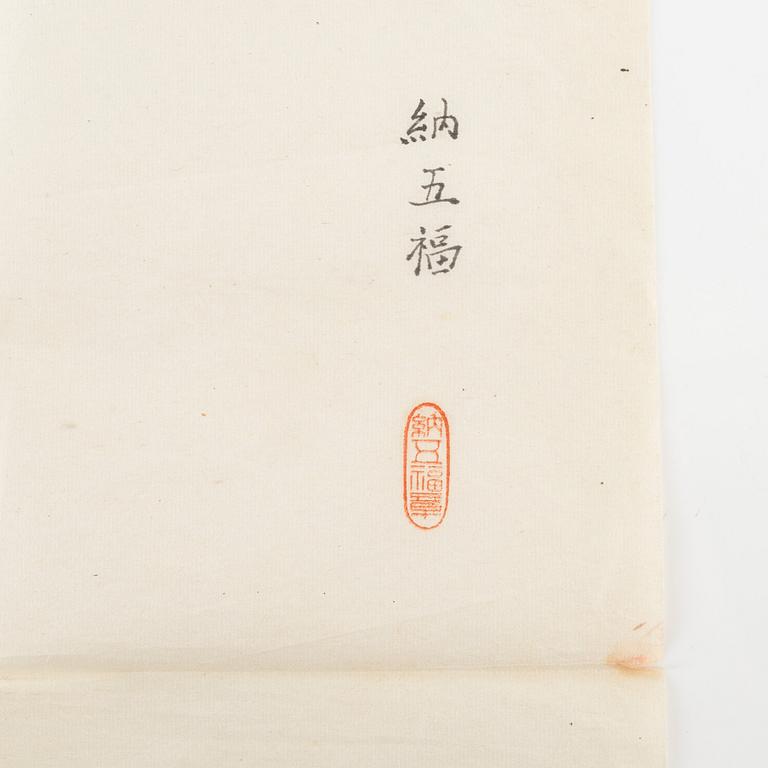 納五福
納五福章